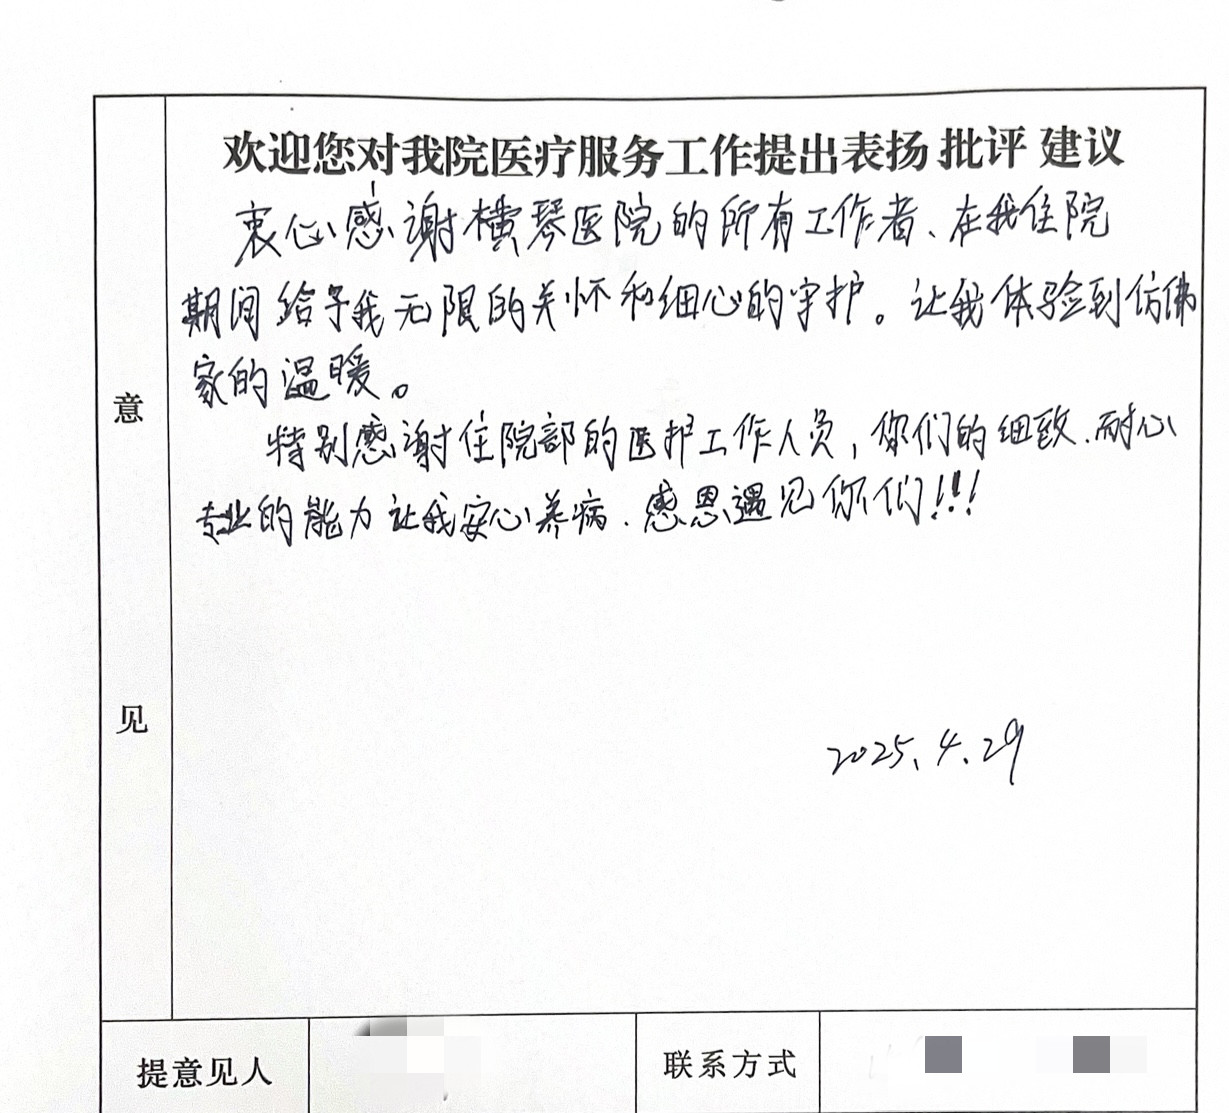 欢迎您对我院医疗服务工作提出表扬 批评 建议
衷心感谢横琴医院的所有工作者、在我住院
期间给予我无限的关怀和细心的守护。让我体验到仿佛
家的温暖。
特别感谢住院部的医护工作人员，你们的细致、耐心
专业的能力让我安心养病、感恩遇见你们!!!
意
见
2025.4.29
提意见人
联系方式